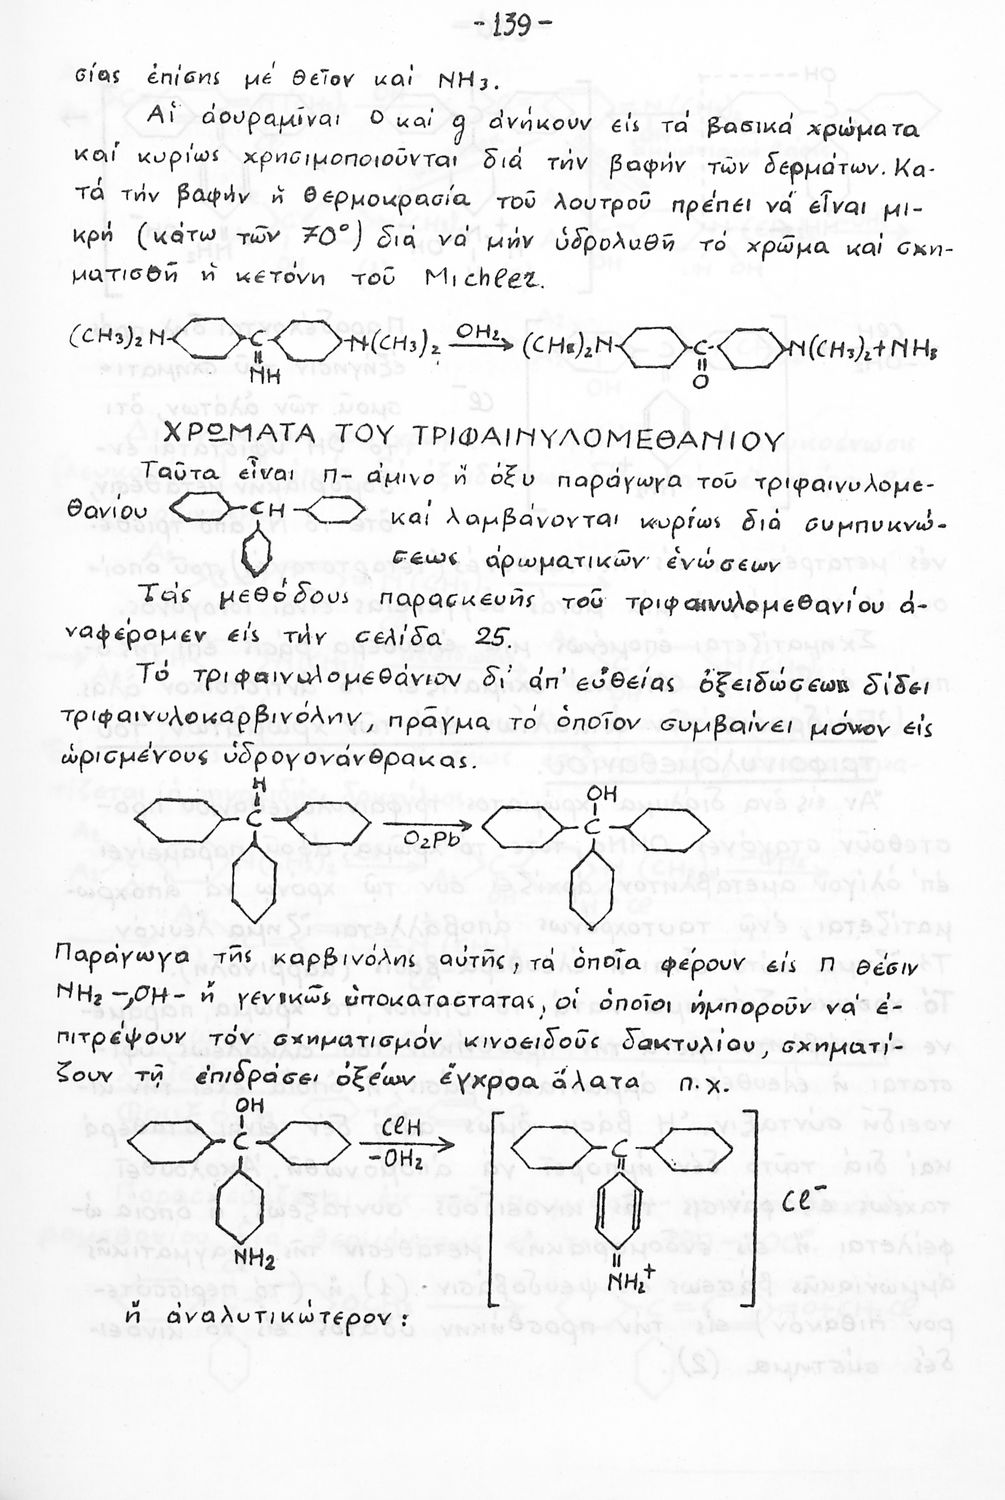 -139-
σίας ἐπίσης μέ θεῖον καί NH3.
Αἱ ἀουραμίναι Ο καί g ἀνήκουν εἰς τά βασικά χρώματα
καί κυρίως χρησιμοποιοῦνται διά τήν βαφήν τῶν δερμάτων. Κα-
τά τήν βαφήν ἡ θερμοκρασία τοῦ λουτροῦ πρέπει νά εἶναι μι-
κρή (κάτω τῶν 70°) διά νά μήν ὑδρολυθῆ τό χρῶμα καί σχη-
ματισθῆ ἡ κετόνη τοῦ Michler.
(CH3)2 N C N(CH3)2 OH2 (CH3)2N C N(CH3)2+NH3
NH O
ΧΡΩΜΑΤΑ ΤΟΥ ΤΡΙΦΑΙΝΥΛΟΜΕΘΑΝΙΟΥ
Ταῦτα εἶναι π- ἀμινο ἤ ὀξυ παράγωγα τοῦ τριφαινυλομε-
θανίου CH καί λαμβάνονται κυρίως διά συμπυκνώ-
σεως ἀρωματικῶν ἑνώσεων
Τάς μεθόδους παρασκευῆς τοῦ τριφαινυλομεθανίου ἀ-
ναφέρομεν εἰς τήν σελίδα 25.
Τό τριφαινυλομεθάνιον δι' ἀπ' εὐθείας ὀξειδώσεως δίδει
τριφαινυλοκαρβινόλην, πρᾶγμα τό ὁποῖον συμβαίνει μόνον εἰς
ὡρισμένους ὑδρογονάνθρακας.
H OH
C O2Pb C
Παράγωγα τῆς καρβινόλης αὐτῆς, τά ὁποῖα φέρουν εἰς π θέσιν
NH2-, OH- ἤ γενικῶς ὑποκαταστατας, οἱ ὁποῖοι ἠμποροῦν νά ἐ-
πιτρέψουν τόν σχηματισμόν κινοειδοῦς δακτυλίου, σχηματί-
ζουν τῆ ἐπιδράσει ὀξέων ἔγχροα ἅλατα π.χ.
OH
C ClH -OH2 C Cl-
NH2 NH2+
ἤ ἀναλυτικώτερον: